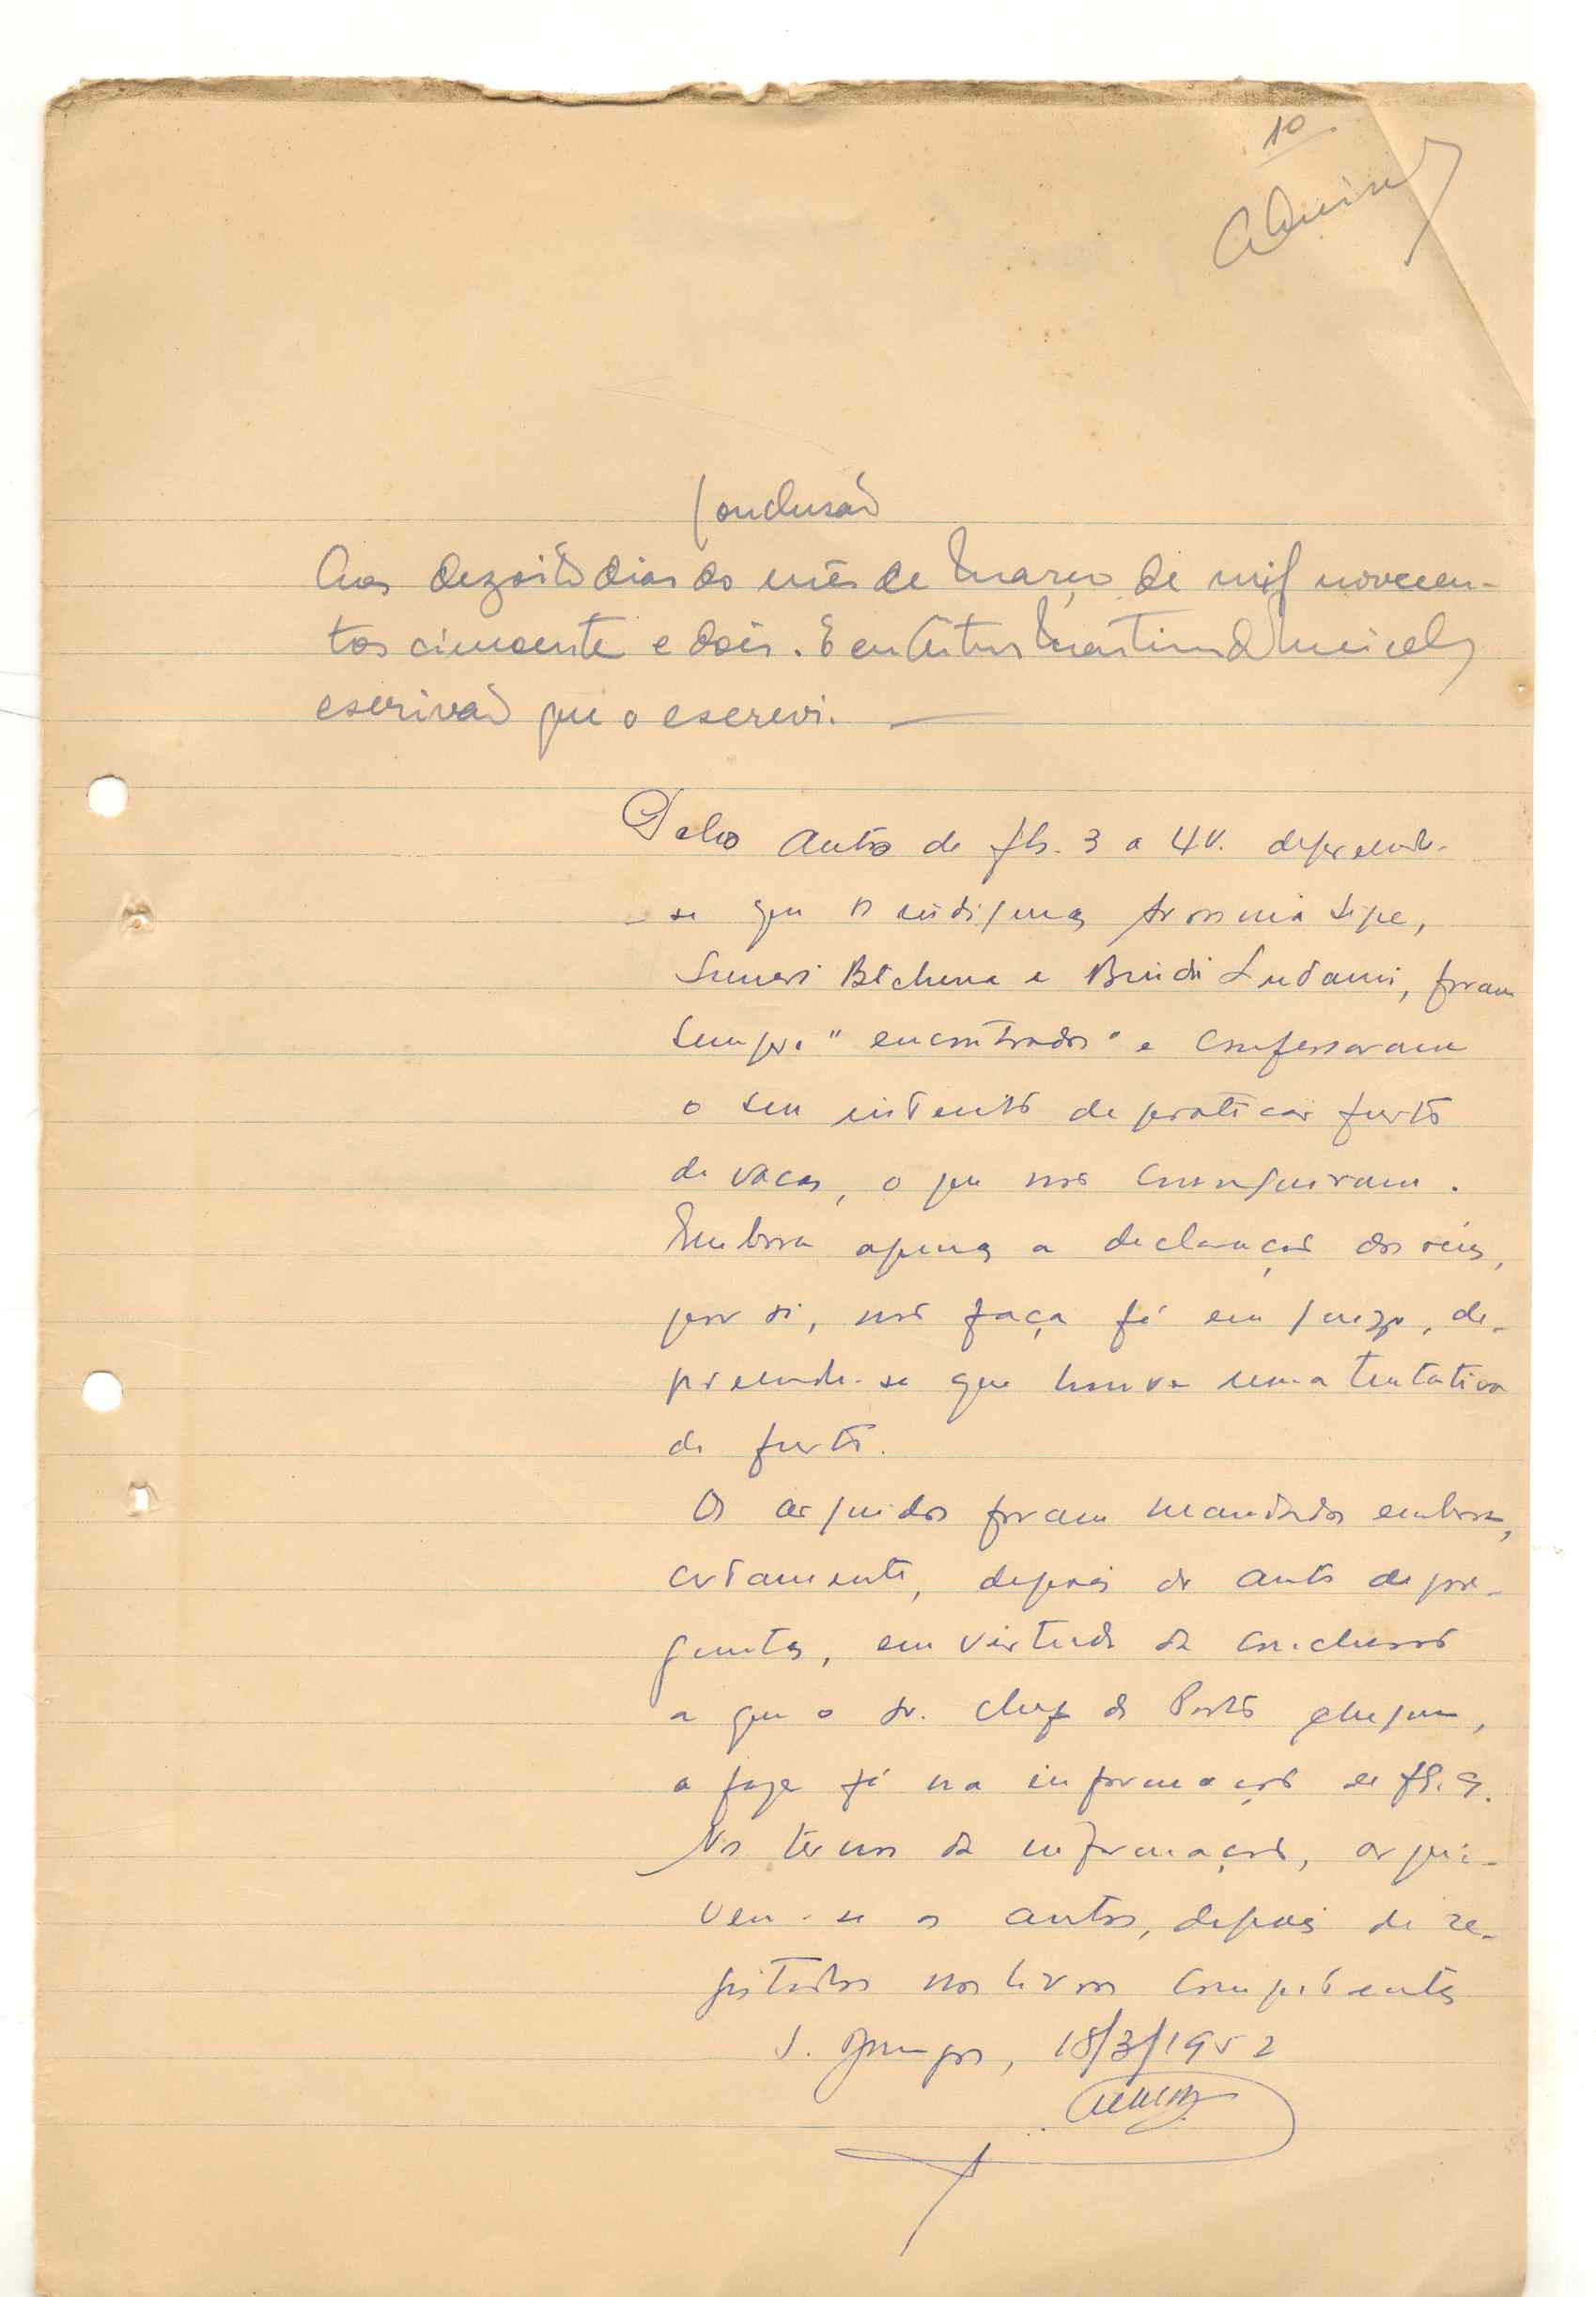 10
Conclusão
Aos dezoito dias do mês de Março de mil novecen-
tos cincoenta e dois. E eu Artur Martins
escrivão que o escrevi. —
Pelo auto de fls. 3 a 4v. depreende-
- se que os indigenas
e Bindi, foram
sempre "encontrados" e confessaram
o seu intento de praticar furto
de vacas, o que não conseguiram.
Embora apenas a declaração dos réus,
por si, não faça fé em juizo, de-
preende-se que houve uma tentativa
de furto.
Os arguidos foram mandados embora,
certamente, depois do auto de per-
guntas, em virtude da conclusão
a que o sr. chefe do Posto chegou,
a fazer fé na informação de fls. 9.
Nos termos da informação, arqui-
vem-se os autos, depois de re-
gistados nos livros competentes
18/3/1952